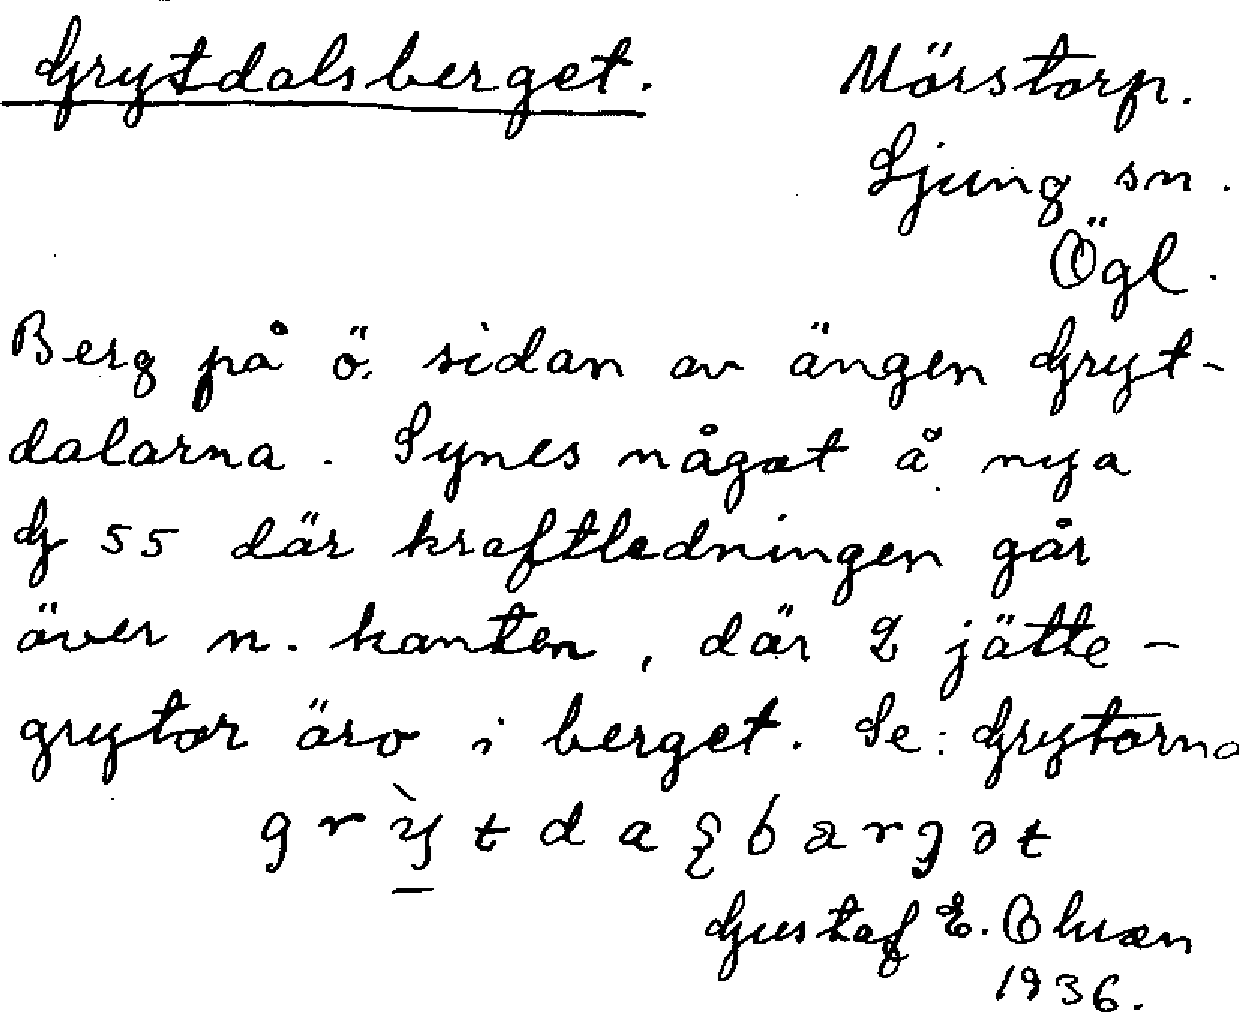 Grytdalsberget. Mörstorp.
Ljung sn.
Ögl.
Berg på ö. sidan av ängen Gryt-
dalarna. Synes något å nya
G 55 där kraftledningen går
över n. kanten, där 2 jätte-
grytor äro i berget. Se: Grytorna
Gustaf E.
1936.